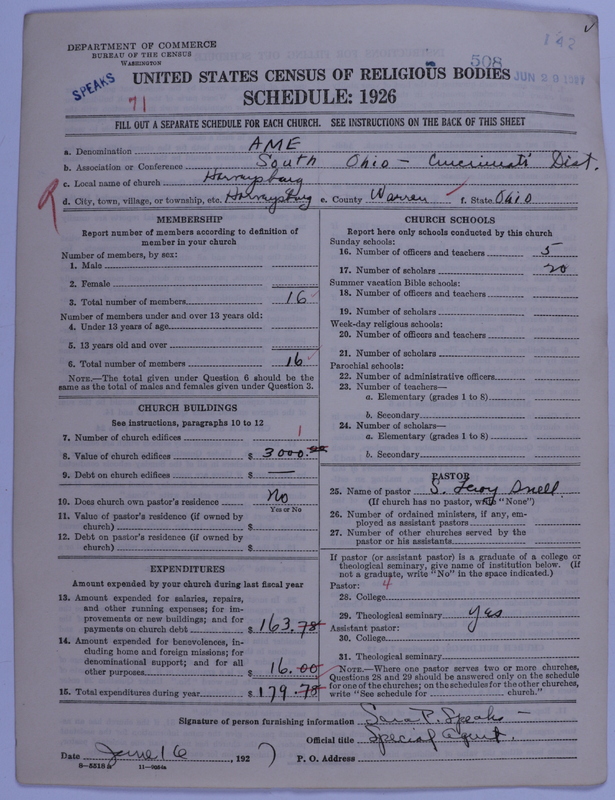 142
508
JUN 28 1927
DEPARTMENT OF COMMERCE
BUREAU OF THE CENSUS
WASHINGTON
SPEAKS
71
UNITED STATES CENSUS OF RELIGIOUS BODIES
SCHEDULE: 1926
FILL OUT A SEPARATE SCHEDULE FOR EACH CHURCH. SEE INSTRUCTIONS ON THE BACK OF THIS SHEET
a. Denomination AME
b. Association or Conference South Ohio - Cincinnati Dist.
c. Local name of church Harveysburg
d. City, town, village, or township, etc. Harveysburg e. County Warren f. State Ohio
MEMBERSHIP
Report number of members according to definition of
member in your church
Number of members, by sex:
1. Male
2. Female
3. Total number of members 16
Number of members under and over 13 years old:
4. Under 13 years of age
5. 13 years old and over
6. Total number of members 16
NOTE.—The total given under Question 6 should be the
same as the total of males and females given under Question 3.
CHURCH BUILDINGS
See instructions, paragraphs 10 to 12
7. Number of church edifices 1
8. Value of church edifices $ 3000.00
9. Debt on church edifices $ —
10. Does church own pastor's residence No
Yes or No
11. Value of pastor's residence (if owned by
church) $
12. Debt on pastor's residence (if owned by
church) $
EXPENDITURES
Amount expended by your church during last fiscal year
13. Amount expended for salaries, repairs,
and other running expenses; for im-
provements or new buildings; and for
payments on church debt $ 163.78
14. Amount expended for benevolences, in-
cluding home and foreign missions; for
denominational support; and for all
other purposes $ 16.00
15. Total expenditures during year $ 179.78
CHURCH SCHOOLS
Report here only schools conducted by this church
Sunday schools:
16. Number of officers and teachers 5
17. Number of scholars 20
Summer vacation Bible schools:
18. Number of officers and teachers
19. Number of scholars
Week-day religious schools:
20. Number of officers and teachers
21. Number of scholars
Parochial schools:
22. Number of administrative officers
23. Number of teachers—
a. Elementary (grades 1 to 8)
b. Secondary
24. Number of scholars—
a. Elementary (grades 1 to 8)
b. Secondary
PASTOR
25. Name of pastor S. Leroy Snell
(If church has no pastor, write "None")
26. Number of ordained ministers, if any, em-
ployed as assistant pastors
27. Number of other churches served by the
pastor or his assistants
If pastor (or assistant pastor) is a graduate of a college or
theological seminary, give name of institution below. (If
not a graduate, write "No" in the space indicated.)
Pastor: 4
28. College
29. Theological seminary Yes
Assistant pastor:
30. College
31. Theological seminary
NOTE.—Where one pastor serves two or more churches,
Questions 28 and 29 should be answered only on the schedule
for one of the churches; on the schedules for the other churches,
write "See schedule for church."
Signature of person furnishing information Sara P. Speaks
Official title Special agent.
Date June 16, 1927 P. O. Address
8-5518 a 11-9054a